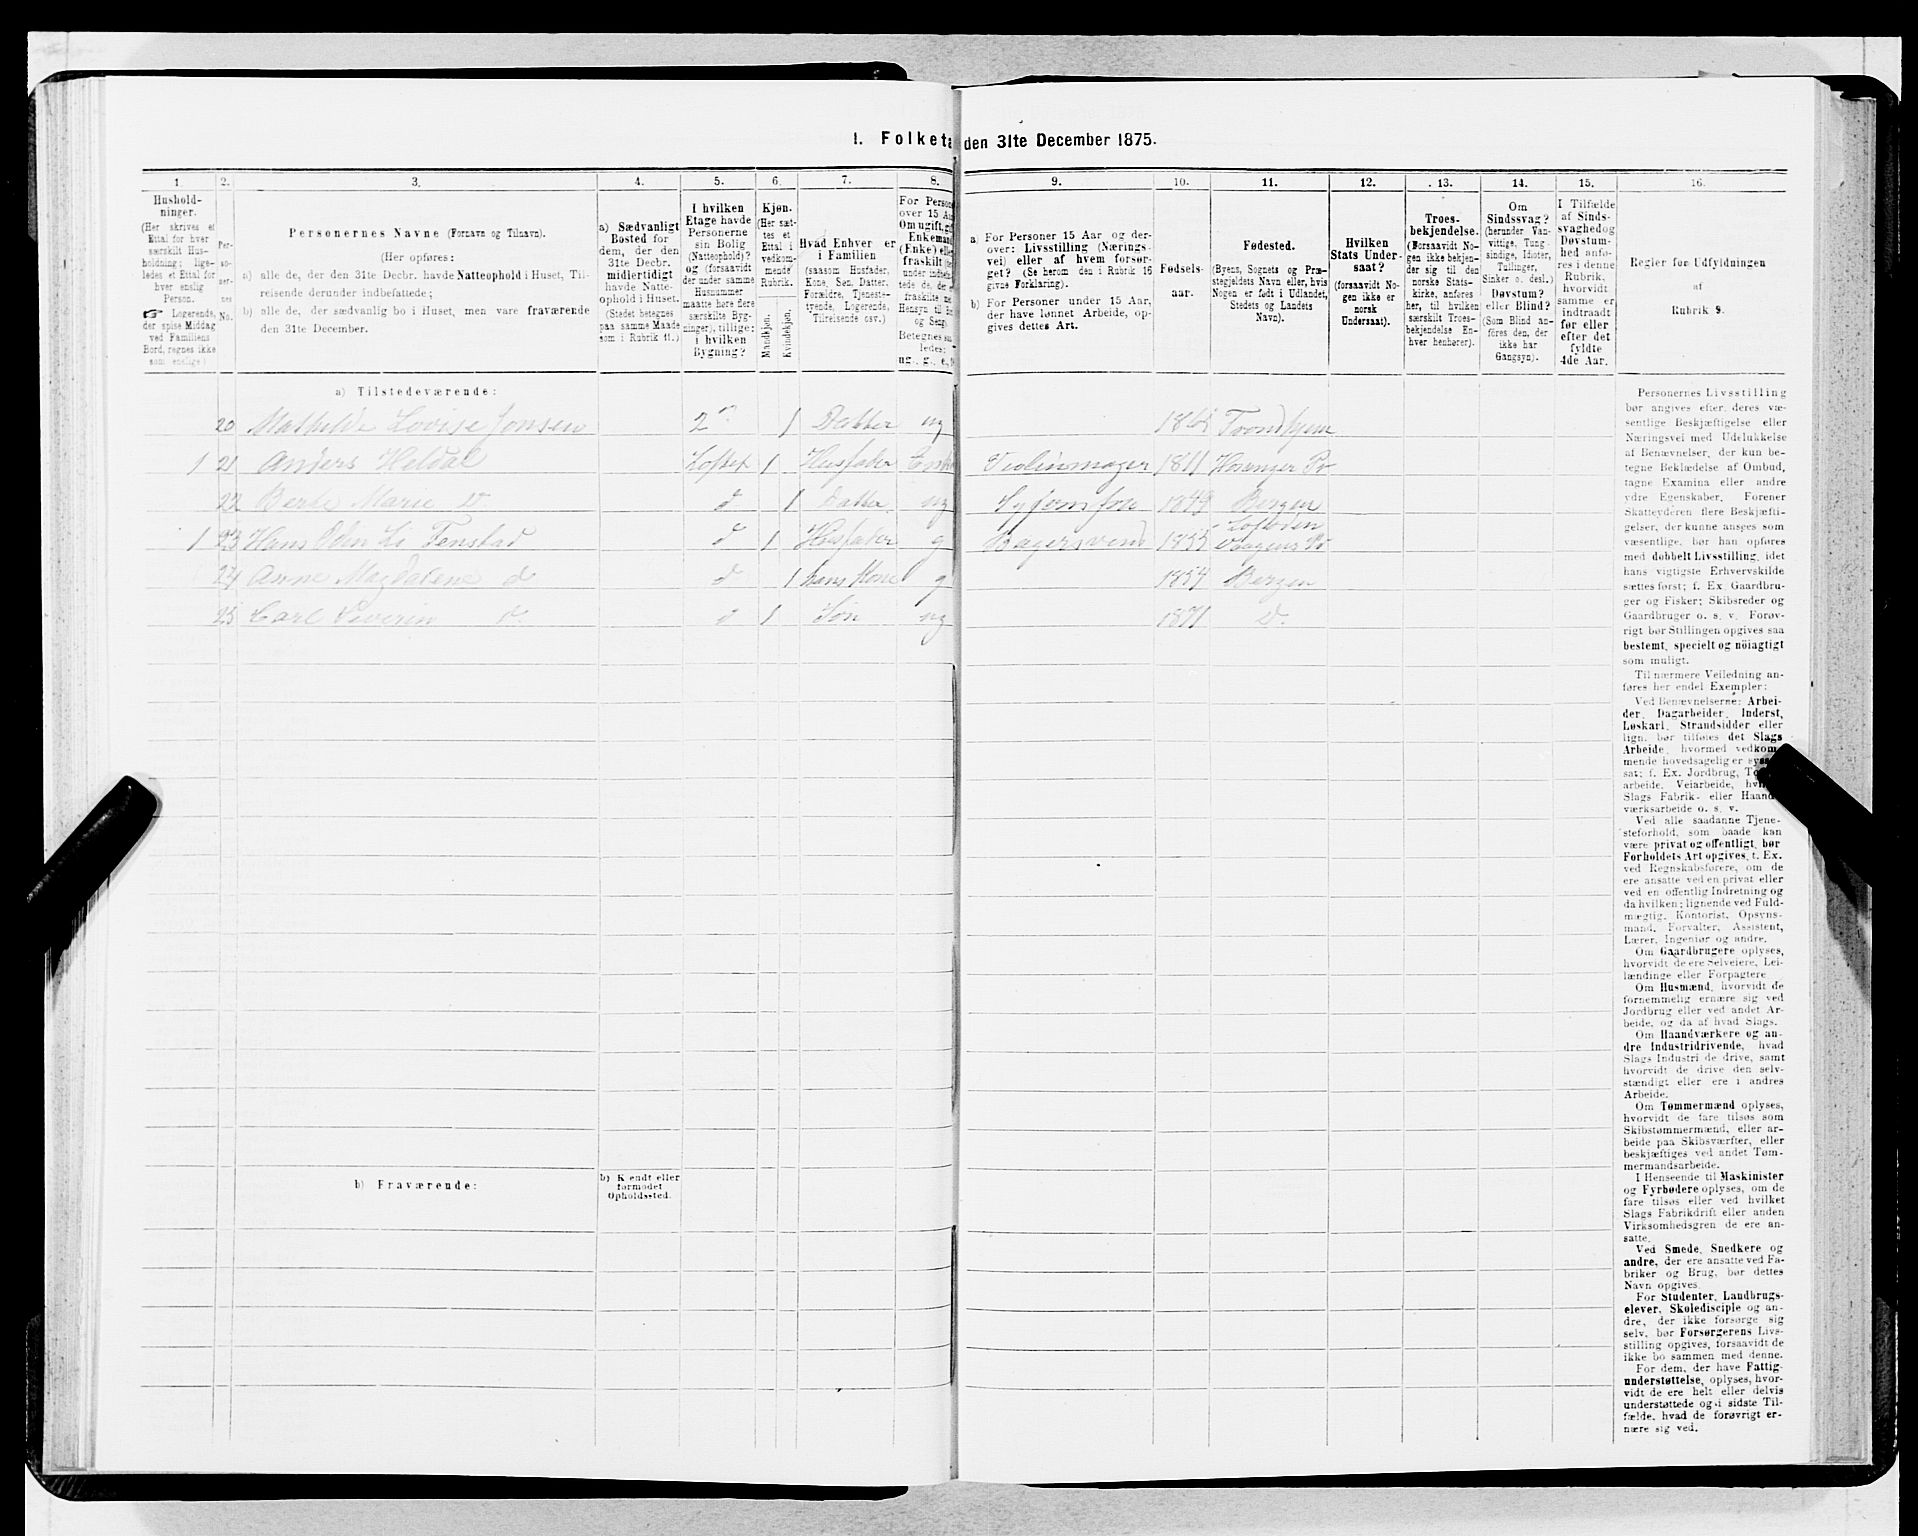 1. Folketæ den 31te December 1875.
1. 2. 3. 4. 5. 6. 7. 8. 9. 10. 11. 12. 13. 14. 15. 16.
Hushold-
ninger.
(Her skrives et
Ettal for hver
særskilt Hus-
holdning; lige-
ledes et Ettal for
hver enslig
Person.
☞ Logerende,
der spise Middag
ved Familiens
Bord, regnes ikke
som enslige)
Per-
so-
ner-
nes
No.
Personernes Navne (Fornavn og Tilnavn).
(Her opføres:
a) alle de, der den 31te Decbr. havde Natteophold i Huset, Til-
reisende derunder indbefattede;
b) alle de, der sædvanlig bo i Huset, men vare fraværende
den 31te December.
a) Sædvanligt
Bosted for
dem, der den
31te Decbr.
midlertidigt
havde Natte-
ophold i Huset.
(Stedet betegnes
paa samme Maade
som i Rubrik 11.)
I hvilken
Etage havde
Personerne
sin Bolig
(Natteophold)?
og (forsaavidt
der under samme
Husnummer
maatte høre flere
særskilte Byg-
ninger), tillige:
i hvilken
Bygning?
Kjøn.
(Her sæt-
tes et
Ettal i
vedkom-
mende
Rubrik.
Mandkjøn.
Kvindekjøn.
Hvad Enhver er
i Familien
(saasom Husfader,
Kone, Søn, Datter,
Forældre, Tjeneste-
tyende, Logerende,
Tilreisende osv.)
For Persone
over 15 Aa
Om ugift, gif
Enkemand
(Enke) elle
fraskilt
Betegnes saa
ledes:
ug., g., e.,
a) For Personer 15 Aar og der-
over: Livsstilling (Nærings-
vei) eller af hvem forsør-
get? (Se herom den i Rubrik 16
givne Forklaring).
b) For Personer under 15 Aar,
der have lønnet Arbeide, op-
gives dettes Art.
Fødsels-
aar.
Fødested.
(Byens, Sognets og Præ-
stegjeldets Navn eller, hvis
Nogen er født i Udlandet,
Stedets og Landets
Navn).
Hvilken
Stats Under-
saat?
(forsaavidt No-
gen ikke er
norsk
Undersaat).
Troes-
bekjendelse.
(Forsaavidt No-
gen ikke bekjen-
der sig til den
norske Stats-
kirke, anføres
her, til hvilken
særskilt Troes-
bekjendelse En-
hver henhører).
Om
Sindssvag?
(herunder Van-
vittige, Tung-
sindige, Idioter,
Tullinger,
Sinker o. desl.)
Døvstum?
eller Blind?
(Som Blind an-
føres den, der
ikke har
Gangsyn).
I Tilfælde
af Sinds-
svaghed og
Døvstum-
hed anfø-
res i denne
Rubrik,
hvorvidt
samme er
indtraadt
før eller
efter det
fyldte
4de Aar.
Regler for Udfyldningen
af
Rubrik 9.
a) Tilstedeværende:
20 Mathilde Lovise Jonsen 2 1 Datter ug 1865 Trondhjem
1 21 Anders Heldal Loftet 1 Husfader Violinmager 1811 Hosanger Pr
22 Berte Marie D d 1 Datter ug Syjomfru 1849 Bergen
1 23 Hans Oden Li Fenstad d 1 Husfader g Bagersvend 1855 Lofoden Vaagens Pr
24 Anne Magdalene d d 1 hans Kone g 1854 Bergen
25 Carl Severin d d 1 Søn ug 1871 D.
b) Fraværende:
b) Kjendt eller
formodet
Opholdssted.
Personernes Livsstilling
bør angives efter deres væ-
sentlige Beskjæftigelse eller
Næringsvei med Udelukkelse
af Benævnelser, der kun be-
tegne Beklædelse af Ombud,
tagne Examina eller andre
ydre Egenskaber. Forener
Skatteyderen flere Beskjæfti-
gelser, der kunne ansees som
væsentlige, bør han opføres
med dobbelt Livsstilling, idet
hans vigtigste Erhvervskilde
sættes først; f. Ex. Gaardbru-
ger og Fisker; Skibsreder og
Gaardbruger o. s. v. Forøv-
rigt bør Stillingen opgives saa
bestemt, specielt og nöiagtigt
som muligt.
Til nærmere Veiledning an-
føres her endel Exempler:
Ved Benævnelserne: Arbei-
der, Dagarbeider, Inderst,
Løskarl, Strandsidder eller
lign. bør tilføies det Slags
Arbeide, hvormed vedkom-
mende hovedsagelig er syssel-
sat; f. Ex. Jordbrug, To
arbeide, Veiarbeide, hvi
Slags Fabrik- eller Haand-
værksarbeide o. s. v.
Ved alle saadanne Tjene-
steforhold, som baade kan
være privat og offentligt, bør
Forholdets Art opgives, t. Ex.
ved Regnskabsførere, om de
ere ansatte ved en privat eller
ved en offentlig Indretning og
da hvilken; lignende ved Fuld-
mægtig, Kontorist, Opsyns-
mand, Forvalter, Assistent,
Lærer, Ingeniør og andre.
Om Gaardbrugere oplyses,
hvorvidt de ere Selveiere, Lei-
lændinge eller Forpagtere
Om Husmænd, hvorvidt de
fornemmelig ernære sig ved
Jordbrug eller ved andet Ar-
beide, og da af hvad Slags.
Om Haandværkere og an-
dre Industridrivende, hvad
Slags Industri de drive, samt
hvorvidt de drive den selv-
stændigt eller ere i andres
Arbeide.
Om Tømmermænd oplyses,
hvorvidt de fare tilsøs som
Skibstømmermænd, eller ar-
beide paa Skibsværfter, eller
beskjæftiges ved andet Tøm-
mermandsarbeide.
I Henseende til Maskinister
og Fyrbødere oplyses, om de
fare tilsøs eller ved hvilket
Slags Fabrikdrift eller anden
Virksomhedsgren de ere an-
satte.
Ved Smede, Snedkere og
andre, der ere ansatte ved Fa-
briker og Brug, bør dettes
Navn opgives.
For Studenter, Landbrugs-
elever, Skoledisciple og an-
dre, der ikke forsørge sig
selv, bør Forsørgerens Livs-
stilling opgives, forsaavidt de
ikke bo sammen med denne.
For dem, der have Fattig-
understøttelse, oplyses, hvor-
vidt de ere helt eller delvis
understøttede og i sidste Til-
fælde, hvad de forøvrigt er-
nære sig ved.